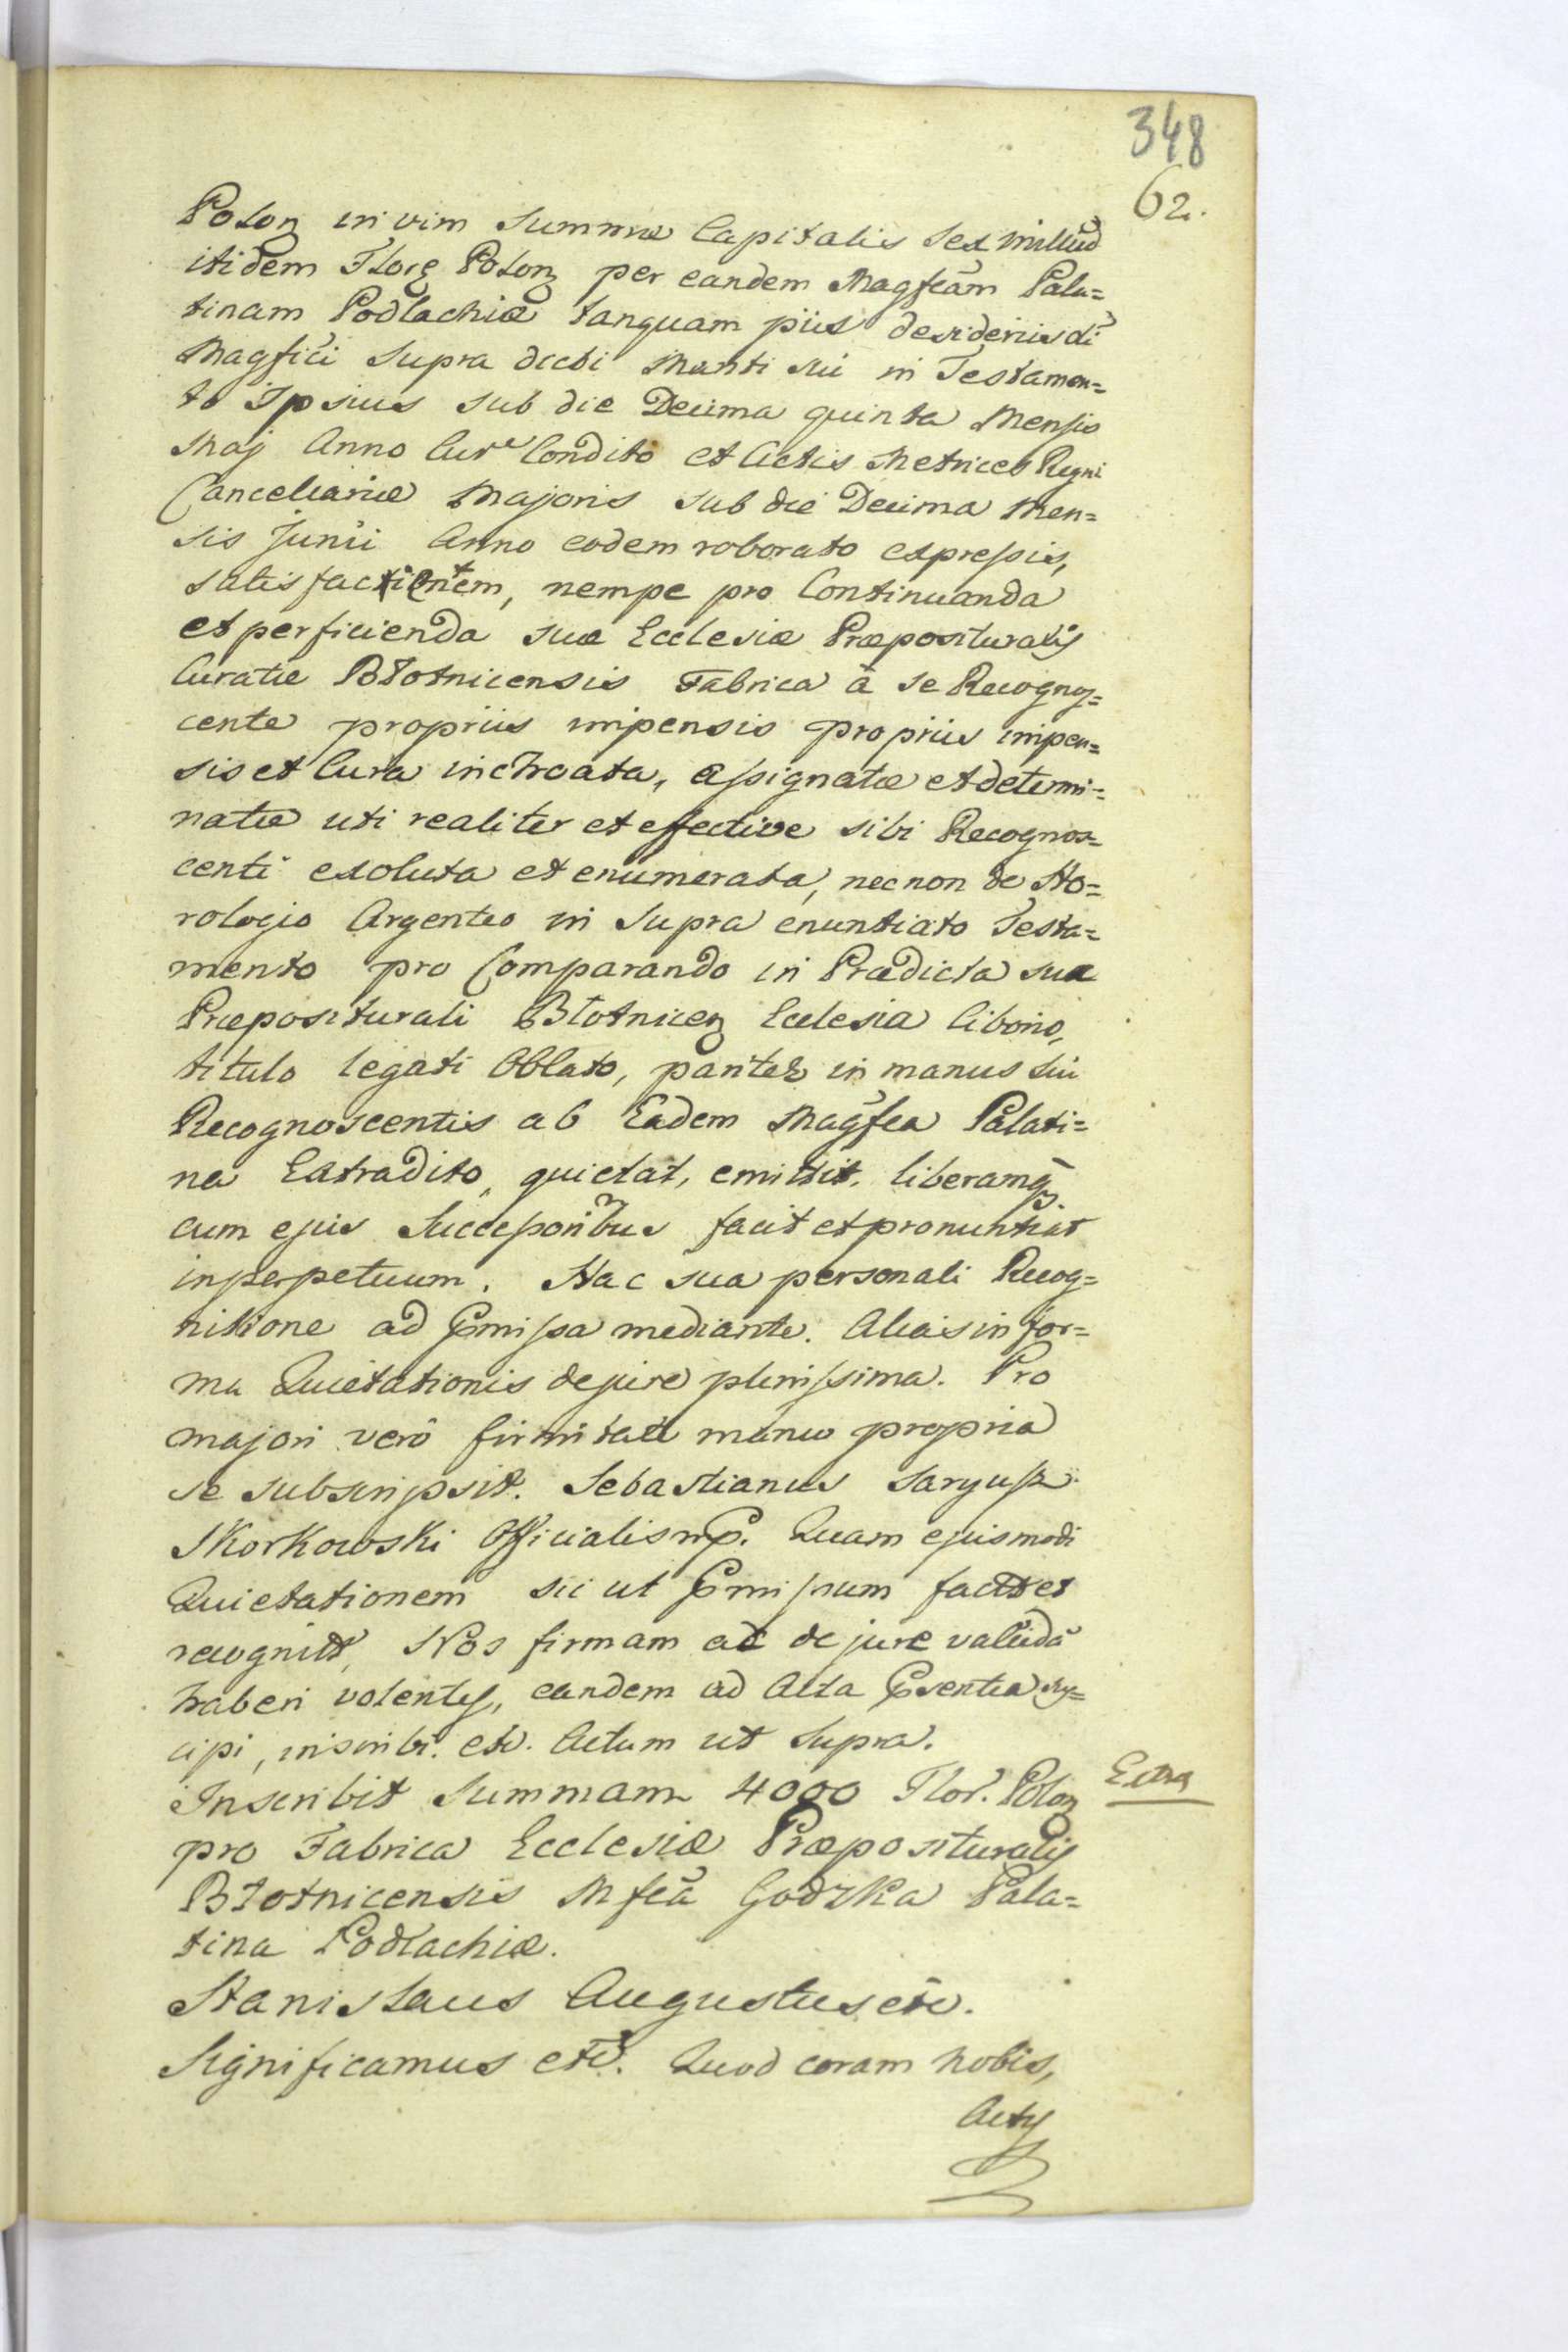 348
62.
Polon in vim Summæ Capitalis Sex milliũ
itidem Flore Polon per eandem Magfcam Pala=
tinam Podlachiæ tanquam piis desideriis di
Magfici Supra dicti Mariti sui in Testamen=
to Ipsius sub die Decima quinta Mensis
Maj Anno Curte Condito et Actis Metrices Regni
Cancellariæ Majoris sub die Decima Men=
sis Junii Anno eodem roborato expressis,
satisfacientem, nempe pro Continuanda
et perficienda suæ Ecclesiæ Præposituralis
Curatæ Błotnicensis Fabrica â se Recognos=
cente propriis impensis propriis impen=
sis et Cura inchoata, assignatæ et determi=
natæ uti realiter et effective sibi Recognos=
centi exoluta et enumerata, nec non de Ho=
rologio Argenteo in Supra enuntiato Testa=
mento pro Comparando in Prædicta sua
Præpositurali Błotnicen Ecclesia Ciborio,
titulo legati Oblato, pariter in manus sui
Recognoscentis ab Eadem Magfca Palati=
na Extradito, quietat, emittit, liberamq
cum ejus Successoribus facit et pronuntiat
in perpetuum. Hac sua personali Recog=
nitione ad Pmissa mediante. Alias in for=
ma Quietationis de jure plenissima. Pro
majori verô firmitate manu propria
se subscripsit. Sebastianus Saryusz
Skorkowski Officialis mp. Quam ejusmodi
Quietationem sic ut Pmissum facit et
recognit, Nos firmam ac de jure validã
haberi volentes, eandem ad Acta Psentia sus=
cipi, inscribi. etc. Actum ut Supra.
Inscribit Summam 4000 Flor. Polon
Extra
pro Fabrica Ecclesiæ Præposituralis
Błotnicensis Mfca Godzka Pala=
tina Podlachiæ.
Stanislaus Augustus etc.
Significamus etc. Quod coram Nobis,
Actis